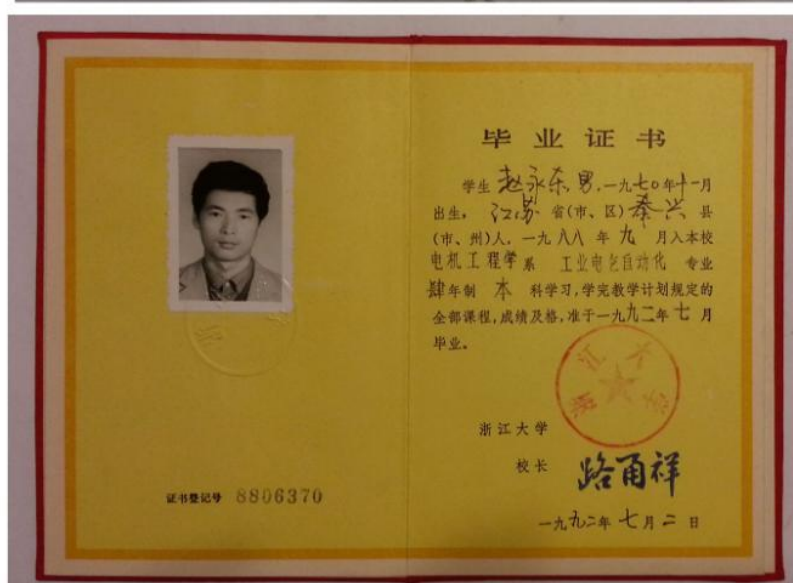 毕业证书
学生 赵永东,男,一九七〇年十一月
出生。 江苏 省(市、区) 泰兴 县
(市、州)人。一九八八年 九 月入本校
电机工程学系 工业电气自动化 专业
肆年制 本 科学习,学完教学计划规定的
全部课程,成绩及格,准于一九九二年 七 月
毕业。
浙江大学
浙江大学
校长 路甬祥
证书登记号 8806370
一九九二年 七 月 二 日